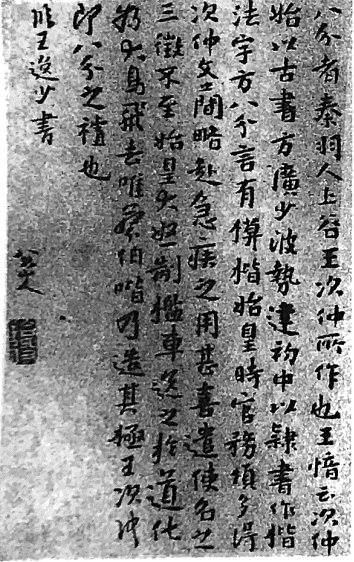 八分者秦羽人上谷王次仲所作也王愔云次仲
始以古書方廣少波勢建初中以隸書作楷
法字方八分言有模楷始皇時官務煩多得
次仲文簡略赴急疾之用甚喜遣使召之
三徵不至始皇大怒制檻車送之於道化
為大鳥飛去唯蔡伯喈乃造其極王次仲
即八分之禮也
臨王逸少書
八大山人